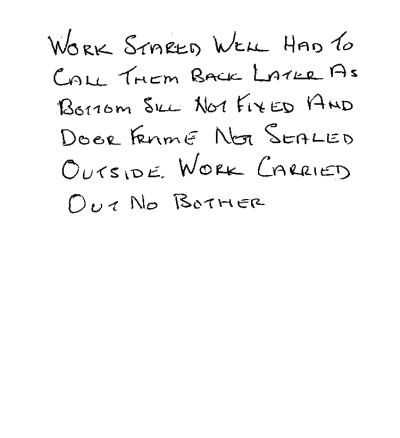 WORK STARED WELL HAD TO
CALL THEM BACK LATER AS
BOTTOM SILL NOT FIXED AND
DOOR FRAME NOT SEALED
OUTSIDE. WORK CARRIED
OUT NO BOTHER